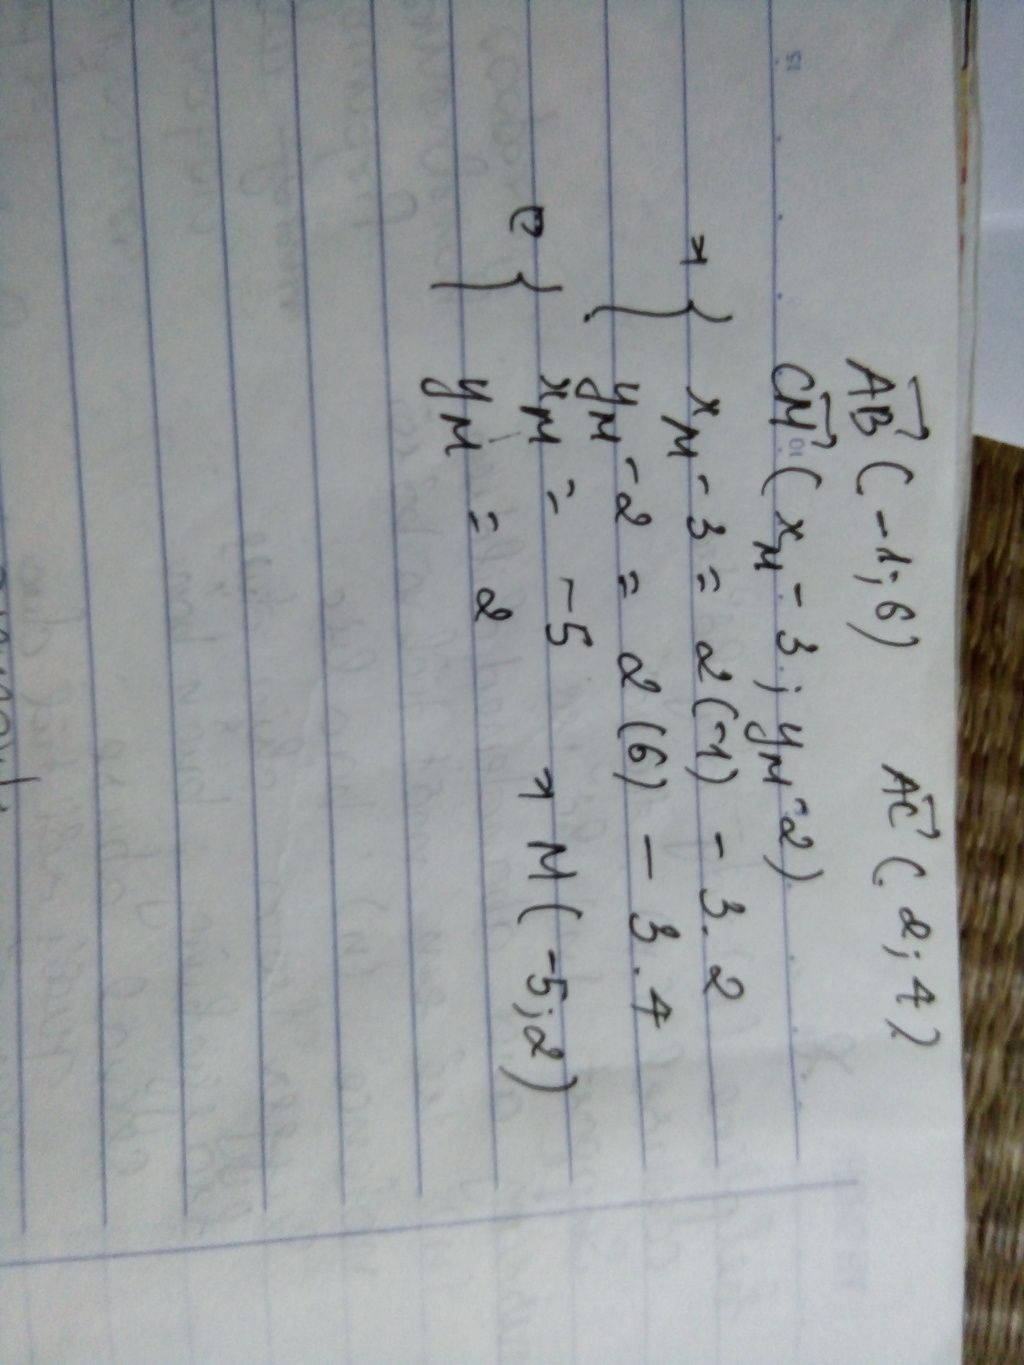 AB (-1; 6) AC (2; 4)
CM (xM - 3; yM - 2)
xM - 3 = 2(-1) - 3.2
yM - 2 = 2(6) - 3.4
xM = -5
yM = 2
M(-5; 2)